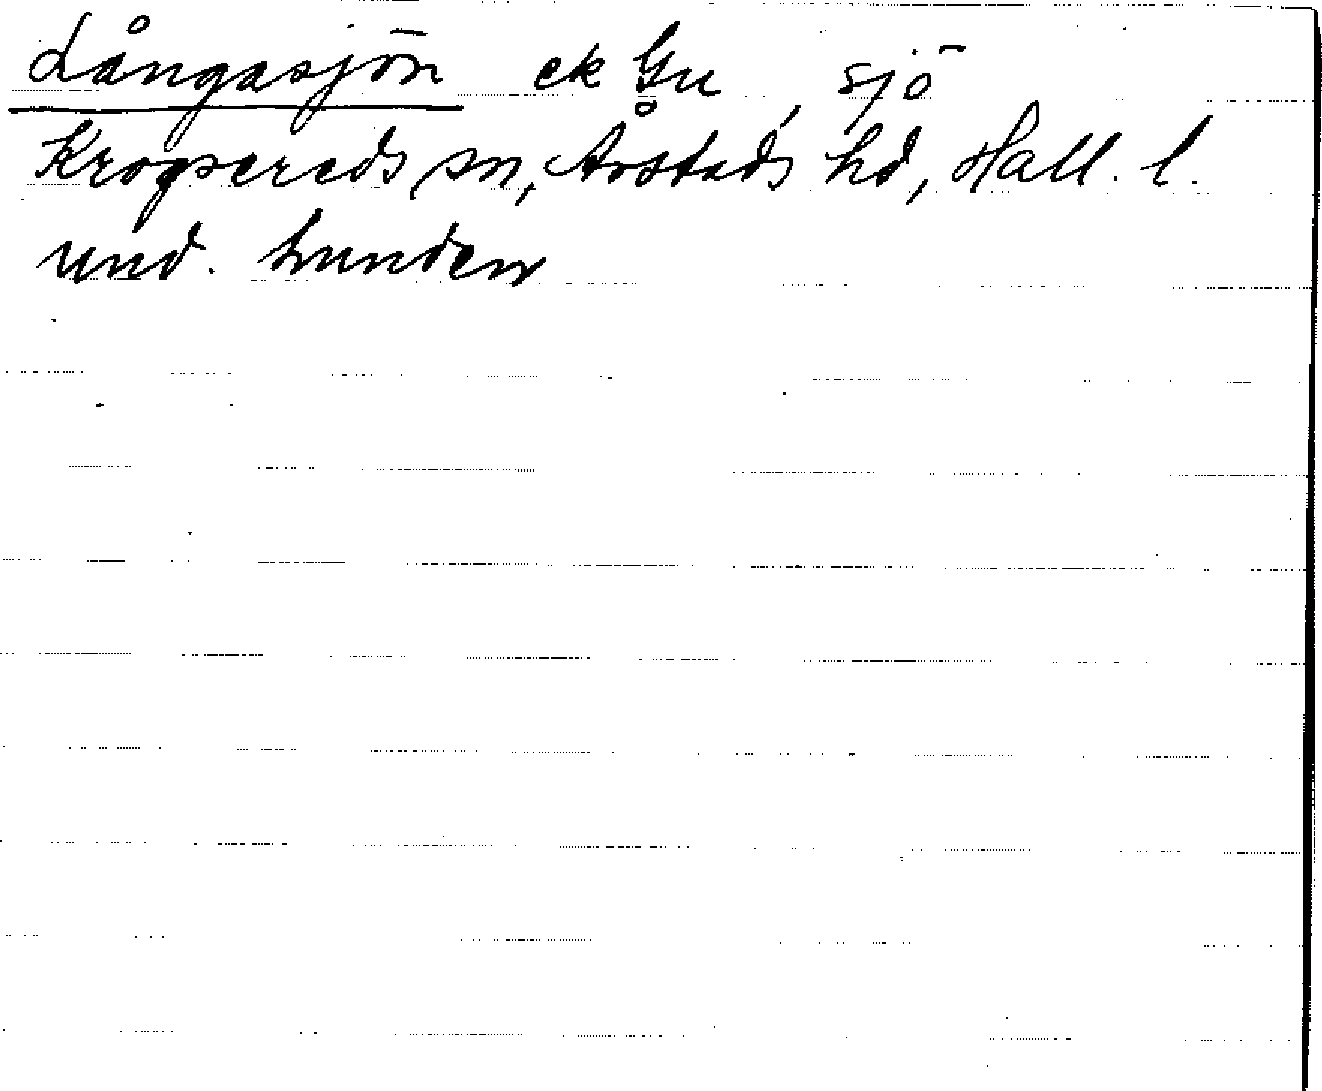 Långasjön ek Gu , sjö
Krogsereds sn, Årstads hd, Hall. l.
und. hunden